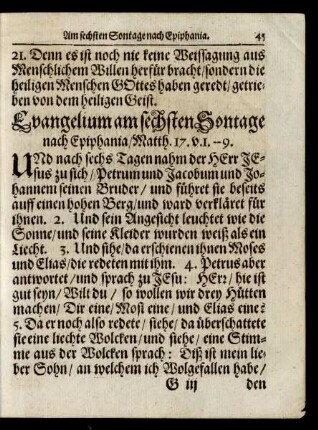 Am sechsten Sontage nach Epiphania. 45
21. Denn es ist noch nie keine Weissagung aus
Menschlichem Willen herfür bracht/sondern die
heiligen Menschen GOttes haben geredt/getrie-
ben von dem heiligen Geist.
Evangelium am sechsten Sontage
nach Epiphania/Matth. 17. v.1.--9.
UNd nach sechs Tagen nahm der HErr JE-
sus zu sich/Petrum und Jacobum und Jo-
hannem seinen Bruder/ und führet sie beseits
auff einen hohen Berg/und ward verkläret für
ihnen. 2. Und sein Angesicht leuchtet wie die
Sonne/und seine Kleider wurden weiß als ein
Liecht. 3. Und sihe/da erschienen ihnen Moses
und Elias/die redeten mit ihm. 4. Petrus aber
antwortet/und sprach zu JEsu: HErr/hie ist
gut seyn/Wilt du/ so wollen wir drey Hütten
machen/Dir eine/Mosi eine/und Elias eine:
5. Da er noch also redete/siehe/da überschattete
sie eine liechte Wolcken/und siehe/eine Stim-
me aus der Wolcken sprach: Diß ist mein lie-
ber Sohn/an welchem ich Wolgefallen habe/
G iij den